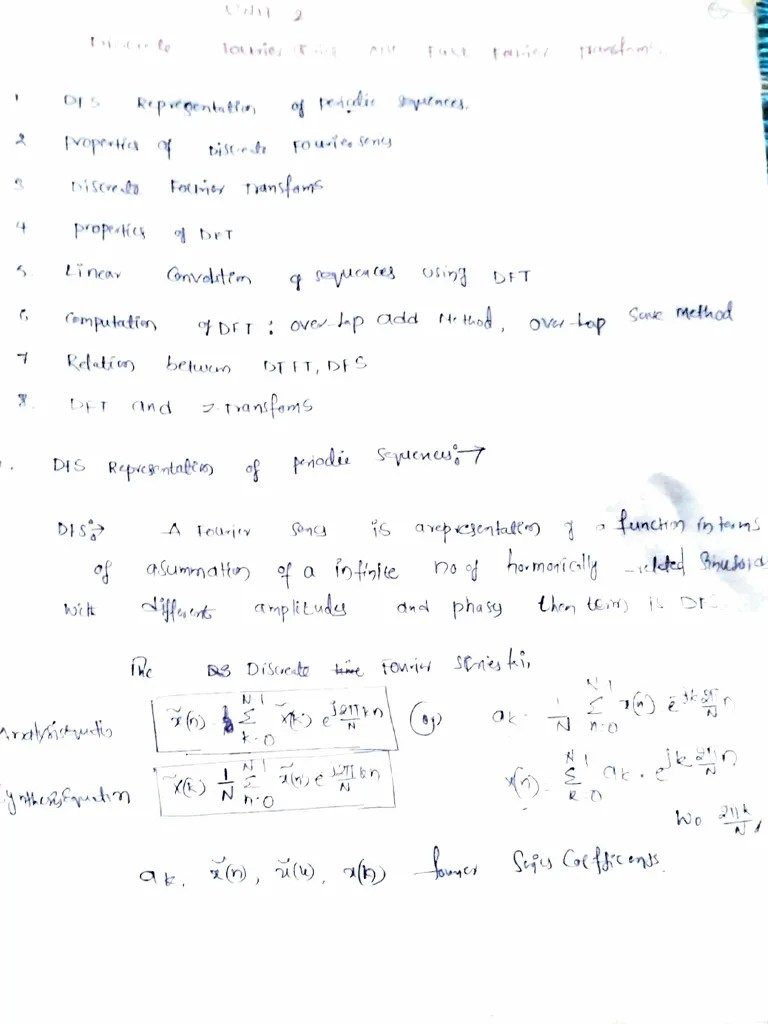 UNIT 2
Discrete Fourier Series and Fast Fourier Transforms
1 DFS Representation of periodic sequences.
2 properties of Discrete Fourier series
3 Discrete Fourier Transfoms
4 properties of DFT
5. Linear Convolution of sequences using DFT
6 Computation of DFT : over-lap add Method, over-lap Save Method
7 Relation between DTFT, DFS
8. DFT and Z-Transfoms
1. DFS Representation of periodic sequences:→
DFS:→ A Fourier series is a representation of a function in terms
of a summation of a infinite no of hormonically related sinusoid
With different amplitudes and phases
The Discrete time Fourier series
Analysis Equation x̃(n) = Σ_{k=0}^{N-1} x̃(k) e^{j2π/N kn} (or) ak = 1/N Σ_{n=0}^{N-1} x(n) e^{-jk 2π/N n}
Synthesis Equation x̃(k) 1/N Σ_{n=0}^{N-1} x̃(n) e^{-j2π/N kn} x(n) = Σ_{k=0}^{N-1} ak . e^{jk 2π/N n}
W0 2πk/N
ak, x̃(n), x̃(k), x(k) fourier Series Coefficents.